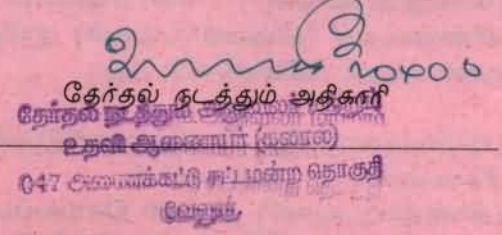 தேர்தல் நடத்தும் அதிகாரி
தேர்தல் நடத்தும்
உதவி ஆணையர் (கலால்)
047 அணைக்கட்டு சட்டமன்ற தொகுதி
வேலூர்